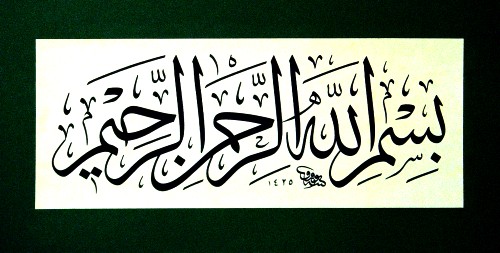 بِسْمِ اللهِ الرَّحْمنِ الرَّحِيمِ
١٤٢٥